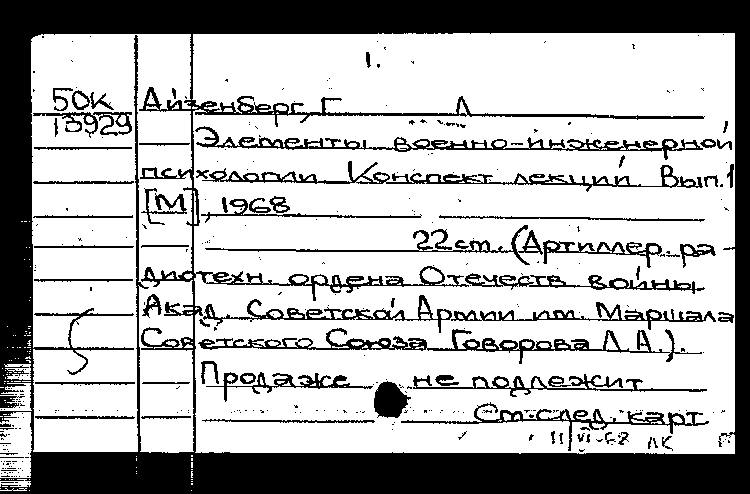 1.
50К Айзенберг, Г Л
13929
Элементы военно-инженерной
психологии Конспект лекций Вып.1
[М], 1968
22 ст. (Артиллер. ра-
диотехн. ордена Отечеств войны
Акад. Советской Армии им. Маршала
Советского Союза Говорова Л.А.).
Продаже не подлежит
См. след. карт
11/VI-68 ЛК